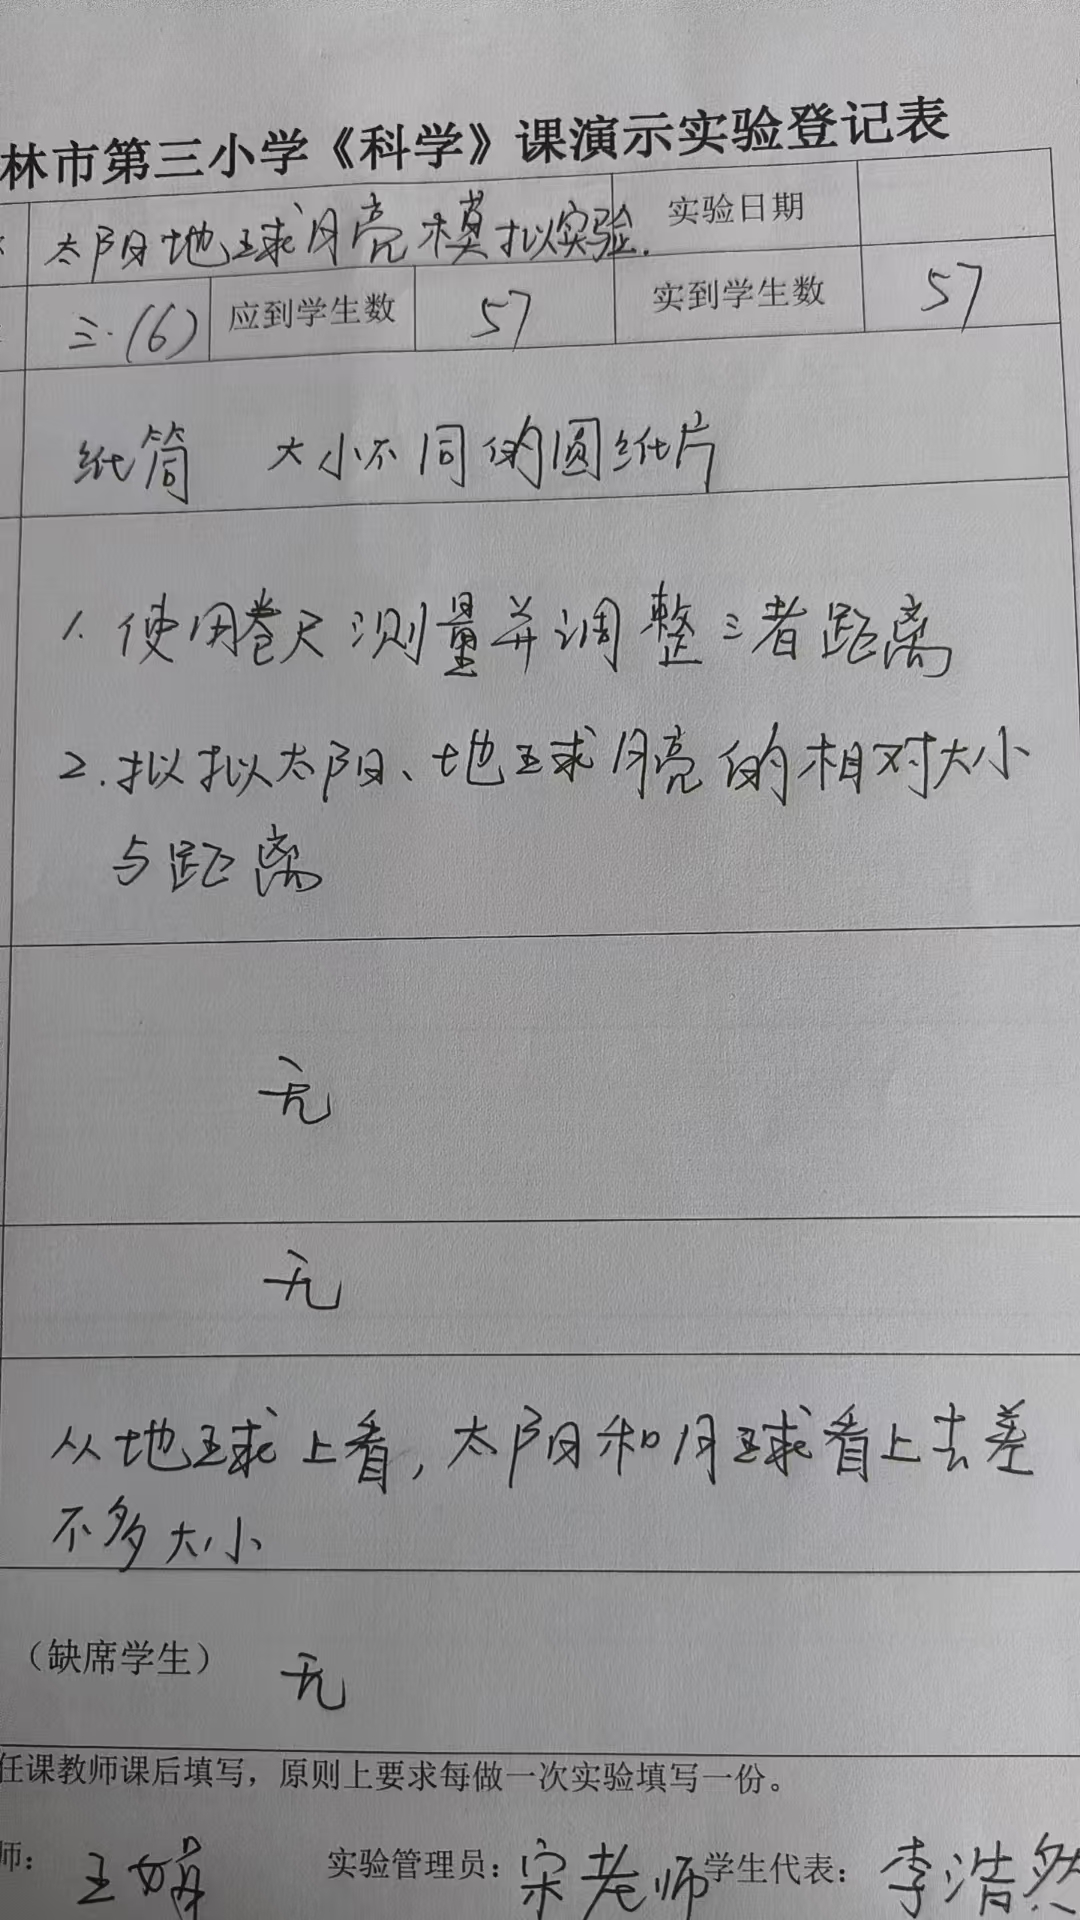 林市第三小学《科学》课演示实验登记表
太阳地球月亮模拟实验. 实验日期
三.(6) 应到学生数 57 实到学生数 57
纸筒 大小不同的圆纸片
1. 使用卷尺测量并调整三者距离
2. 拟拟太阳、地球月亮的相对大小
与距离
无
无
从地球上看,太阳和月球看上去差
不多大小
（缺席学生） 无
任课教师课后填写，原则上要求每做一次实验填写一份。
师: 王娟 实验管理员: 宋老师 学生代表: 李浩然